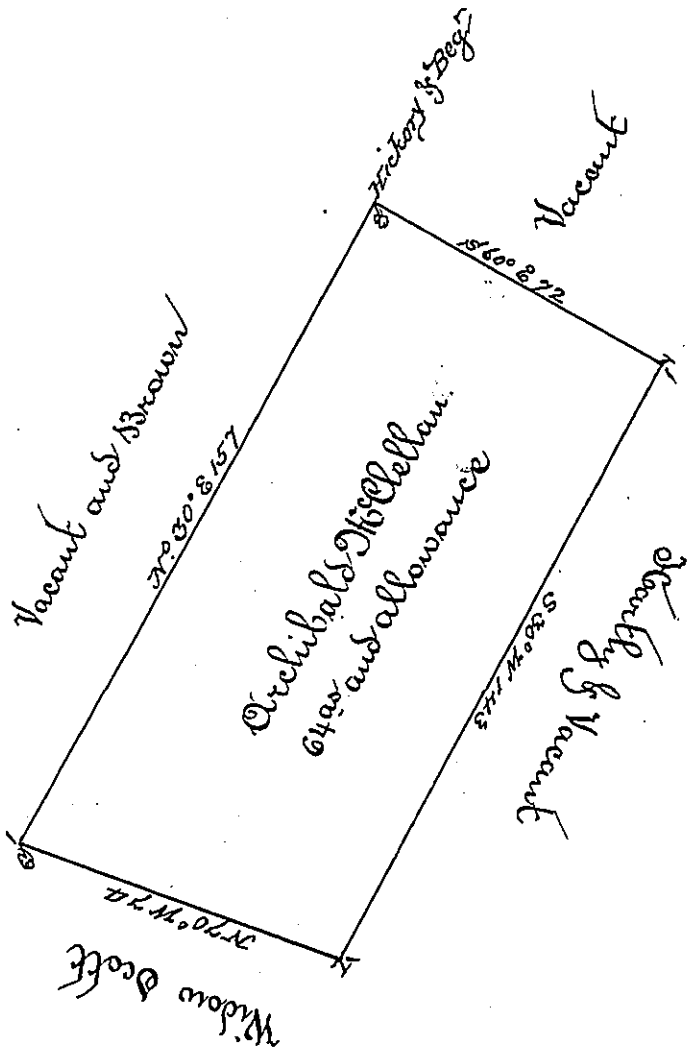 Hickory & Beg.
Vacant
S 60° E 72
Vacant and Brown
N° 30° E 157
Archibald McClellan.
64 as and allowance
S 30° W 143
& Vacant
N 70° W 74
Widow Scott
B
B